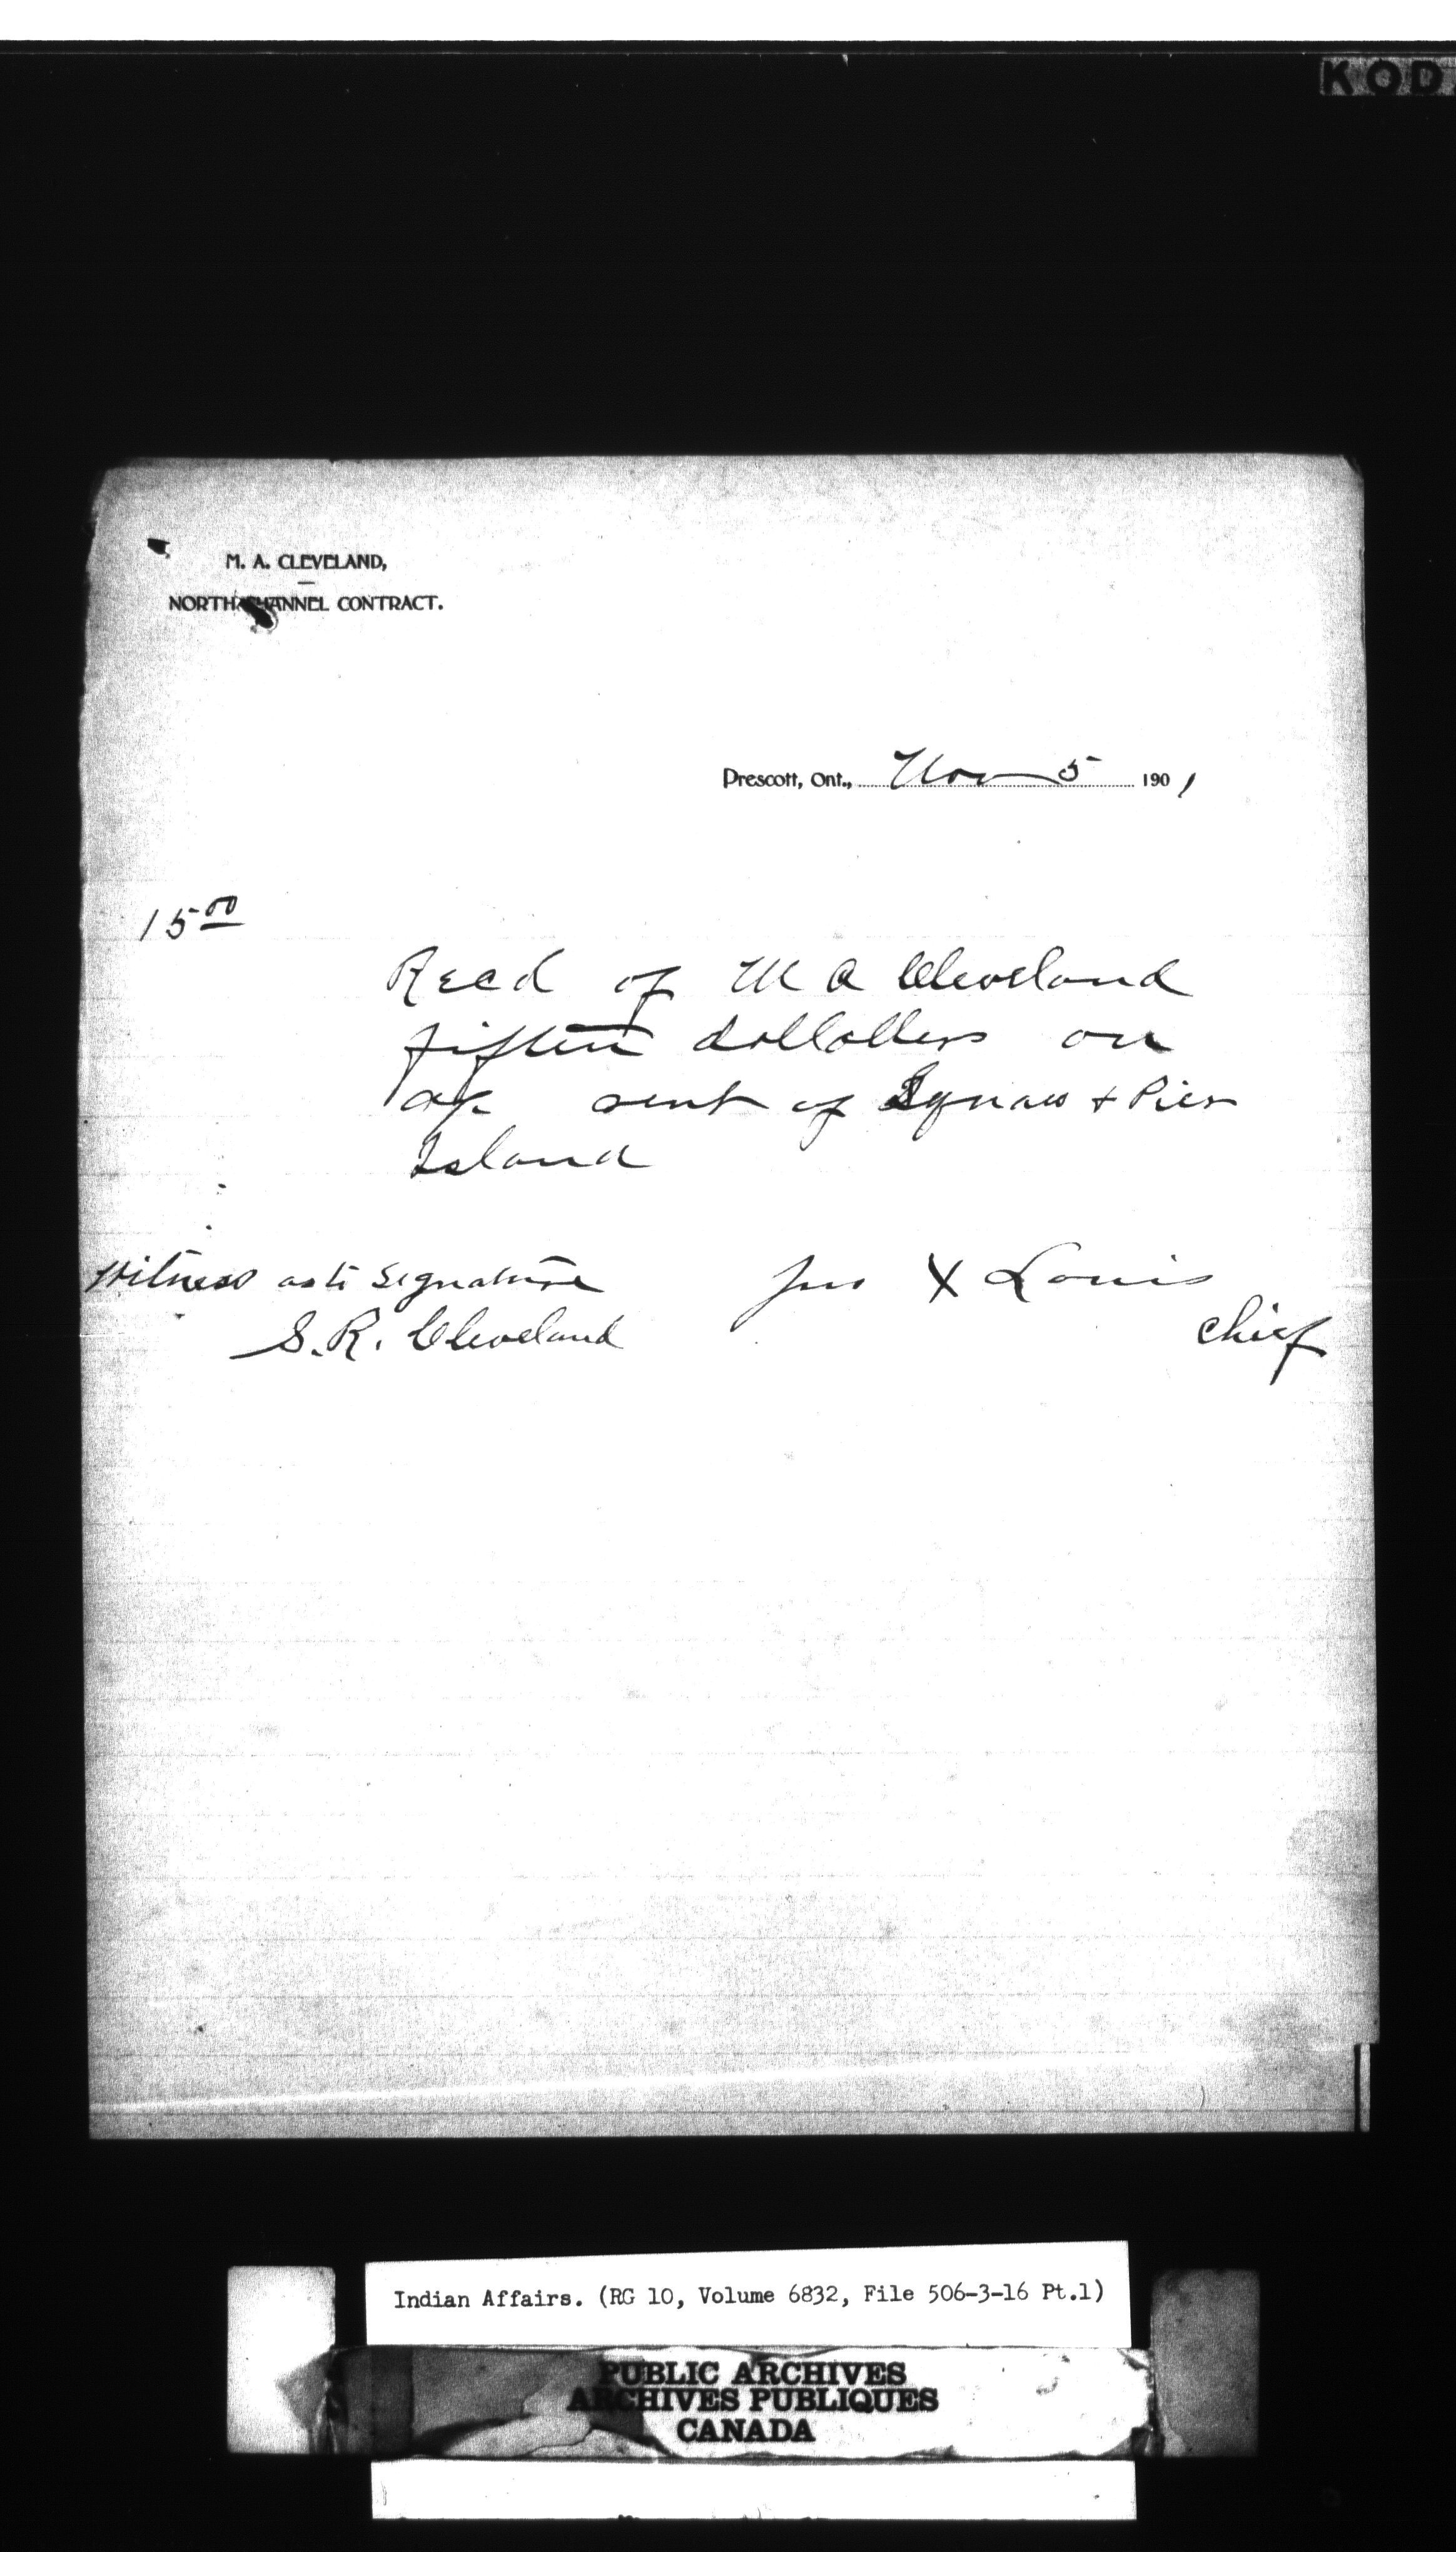 KOD
M. A. CLEVELAND,
NORTH CHANNEL CONTRACT.
Prescott, Ont., Nov 5 1901
15 00
Recd of M A Cleveland
fifteen dollollers on
a/c rent of & Pier
Island
Witness as to Signature Jno X Louis
S. R. Cleveland chief
Indian Affairs. (RG 10, Volume 6832, File 506-3-16 Pt.1)
PUBLIC ARCHIVES
ARCHIVES PUBLIQUES
CANADA